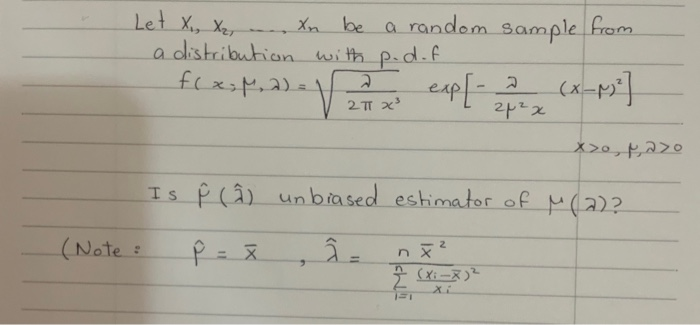 Let X₁, X₂, ..., Xn be a random sample from
a distribution with p.d.f
f(x; μ, λ) = √(λ / 2π x³) exp[- λ / 2μ²x (x-μ)²]
x>0, μ, λ>0
Is μ̂ (λ̂) unbiased estimator of μ(λ)?
(Note : μ̂ = x̄ , λ̂ = n x̄² / Σⁿᵢ₌₁ (xᵢ-x̄)² / xᵢ